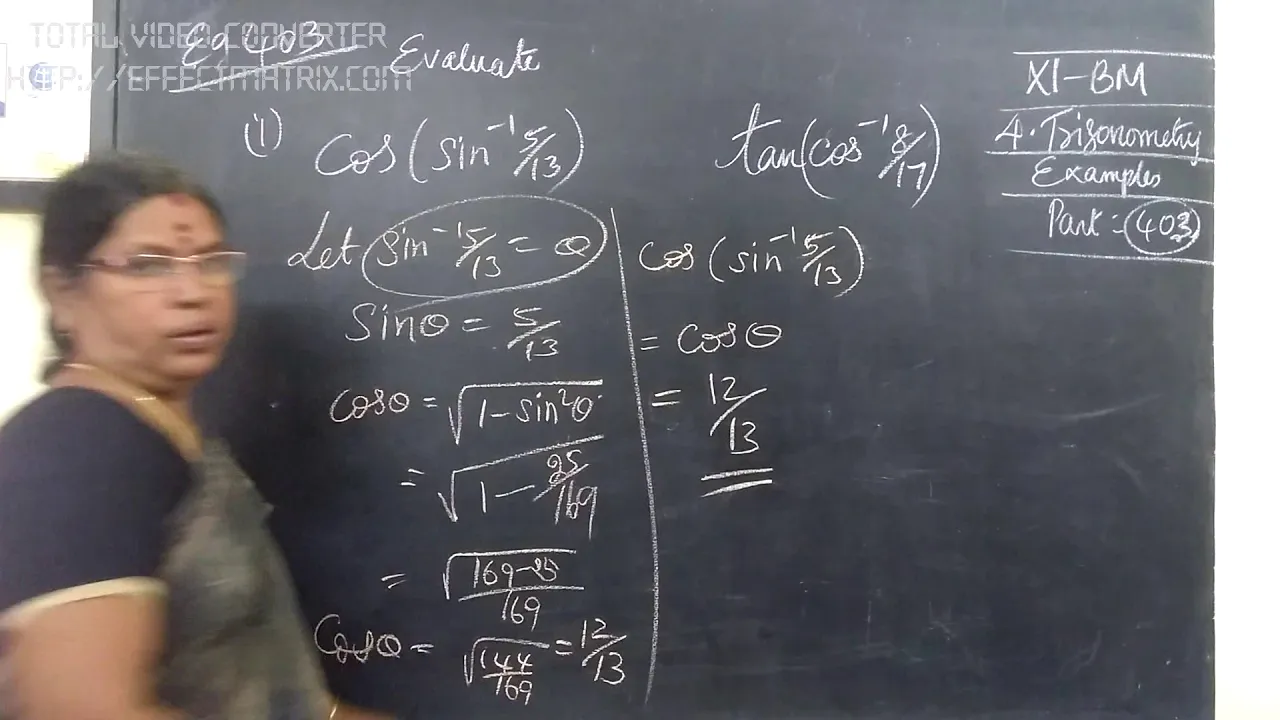 TOTAL VIDEO CONVERTER
HTTP://EFFECTMATRIX.COM
Eg 403 Evaluate
(1) Cos(Sin⁻¹ 5/13)
tan(cos⁻¹ 8/17)
XI-BM
4. Trigonometry
Examples
Part = 403
Let Sin⁻¹ 5/13 = θ
Sinθ = 5/13
Cosθ = √(1-Sin²θ)
= √(1 - 25/169)
= √((169-25)/169)
Cosθ = √(144/169) = 12/13
Cos(sin⁻¹ 5/13)
= Cosθ
= 12/13